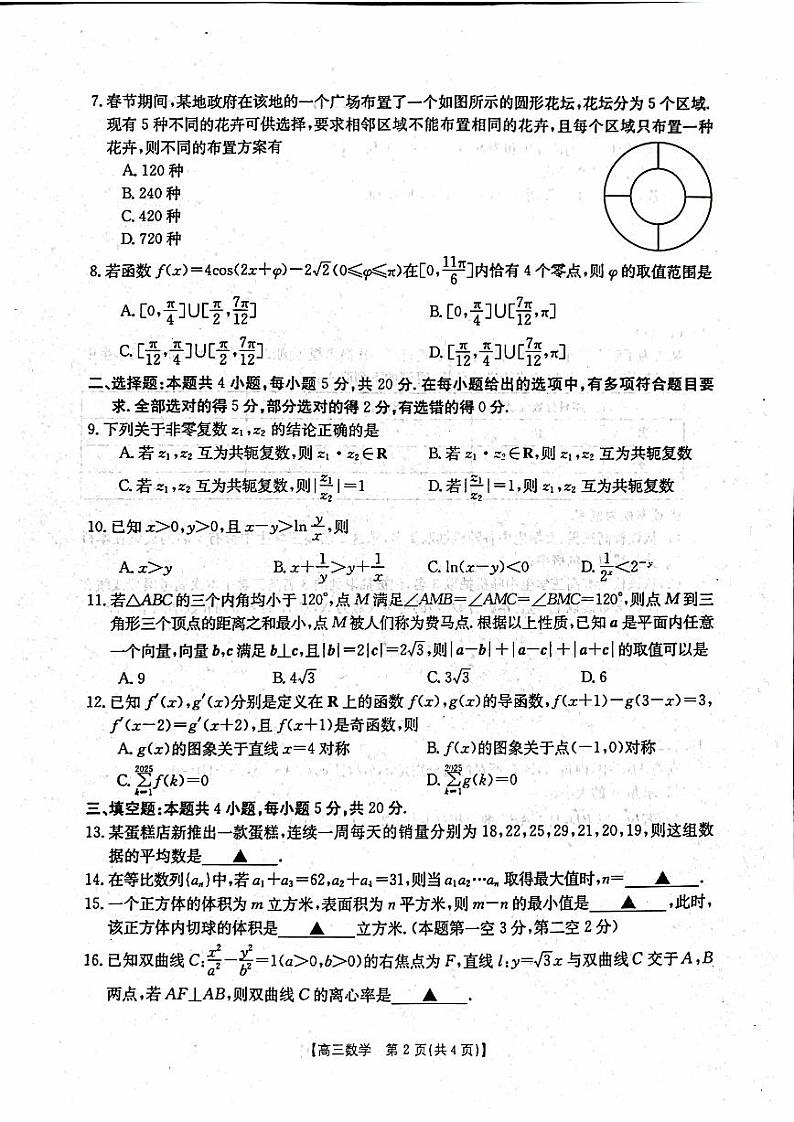 7.春节期间,某地政府在该地的一个广场布置了一个如图所示的圆形花坛,花坛分为5个区域.
现有5种不同的花卉可供选择,要求相邻区域不能布置相同的花卉,且每个区域只布置一种
花卉,则不同的布置方案有
A.120种
B.240种
C.420种
D.720种
8.若函数f(x)=4cos(2x+φ)-2√2(0⩽φ⩽π)在[0,11π/6]内恰有4个零点,则φ的取值范围是
A.[0,π/4]∪[π/2,7π/12] B.[0,π/4]∪[7π/12,π]
C.[π/12,π/4]∪[π/2,7π/12] D.[π/12,π/4]∪[7π/12,π]
二、选择题:本题共4小题,每小题5分,共20分.在每小题给出的选项中,有多项符合题目要
求.全部选对的得5分,部分选对的得2分,有选错的得0分.
9.下列关于非零复数z₁,z₂的结论正确的是
A.若z₁,z₂互为共轭复数,则z₁·z₂∈R B.若z₁·z₂∈R,则z₁,z₂互为共轭复数
C.若z₁,z₂互为共轭复数,则|z₁/z₂|=1 D.若|z₁/z₂|=1,则z₁,z₂互为共轭复数
10.已知x>0,y>0,且x-y>ln y/x,则
A.x>y B.x+1/y>y+1/x C.ln(x-y)<0 D.1/2ˣ<2⁻ʸ
11.若△ABC的三个内角均小于120°,点M满足∠AMB=∠AMC=∠BMC=120°,则点M到三
角形三个顶点的距离之和最小,点M被人们称为费马点.根据以上性质,已知a是平面内任意
一个向量,向量b,c满足b⊥c,且|b|=2|c|=2√3,则|a-b|+|a-c|+|a+c|的取值可以是
A.9 B.4√3 C.3√3 D.6
12.已知f′(x),g′(x)分别是定义在R上的函数f(x),g(x)的导函数,f(x+1)-g(3-x)=3,
f′(x-2)=g′(x+2),且f(x+1)是奇函数,则
A.g(x)的图象关于直线x=4对称 B.f(x)的图象关于点(-1,0)对称
C.2025∑k=1 f(k)=0 D.2025∑k=1 g(k)=0
三、填空题:本题共4小题,每小题5分,共20分.
13.某蛋糕店新推出一款蛋糕,连续一周每天的销量分别为18,22,25,29,21,20,19,则这组数
据的平均数是____▲____.
14.在等比数列{aₙ}中,若a₁+a₃=62,a₂+a₄=31,则当a₁a₂…aₙ取得最大值时,n=____▲____.
15.一个正方体的体积为m立方米,表面积为n平方米,则m-n的最小值是____▲____,此时,
该正方体内切球的体积是____▲____立方米.(本题第一空3分,第二空2分)
16.已知双曲线C:x²/a²-y²/b²=1(a>0,b>0)的右焦点为F,直线l:y=√3x与双曲线C交于A,B
两点,若AF⊥AB,则双曲线C的离心率是____▲____.
【高三数学 第2页(共4页)】